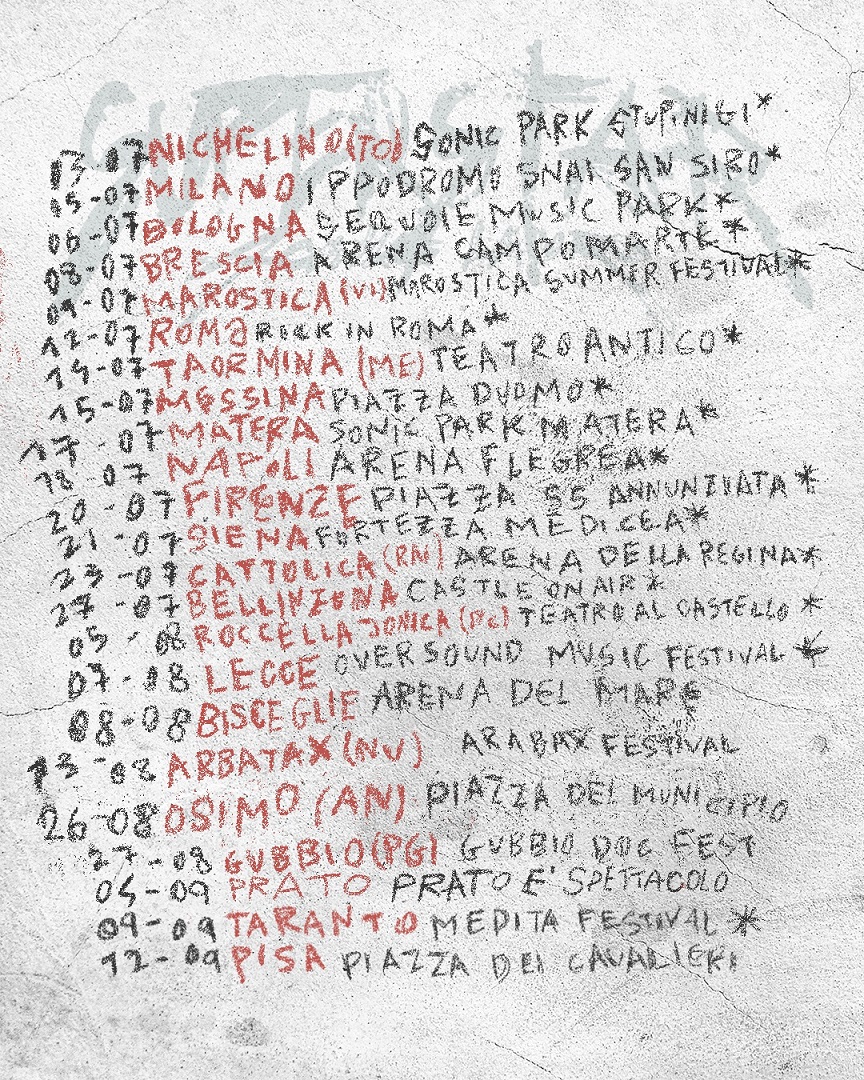 03-07 NICHELINO (TO) SONIC PARK STUPINIGI*
05-07 MILANO IPPODROMO SNAI SAN SIRO*
06-07 BOLOGNA SEQUOIE MUSIC PARK*
08-07 BRESCIA ARENA CAMPO MARTE*
09-07 MAROSTICA (VI) MAROSTICA SUMMER FESTIVAL*
12-07 ROMA ROCK IN ROMA*
14-07 TAORMINA (ME) TEATRO ANTICO*
15-07 MESSINA PIAZZA DUOMO*
17-07 MATERA SONIC PARK MATERA*
18-07 NAPOLI ARENA FLEGREA*
20-07 FIRENZE PIAZZA SS ANNUNZIATA*
21-07 SIENA FORTEZZA MEDICEA*
23-07 CATTOLICA (RN) ARENA DELLA REGINA*
27-07 BELLINZONA CASTLE ON AIR*
05-08 ROCCELLA JONICA (RC) TEATRO AL CASTELLO*
07-08 LECCE OVERSOUND MUSIC FESTIVAL*
08-08 BISCEGLIE ARENA DEL MARE
13-08 ARBATAX (NU) ARABAX FESTIVAL
26-08 OSIMO (AN) PIAZZA DEL MUNICIPIO
27-08 GUBBIO (PG) GUBBIO DOC FEST
04-09 PRATO PRATO E' SPETTACOLO
09-09 TARANTO MEDITA FESTIVAL*
12-09 PISA PIAZZA DEI CAVALIERI